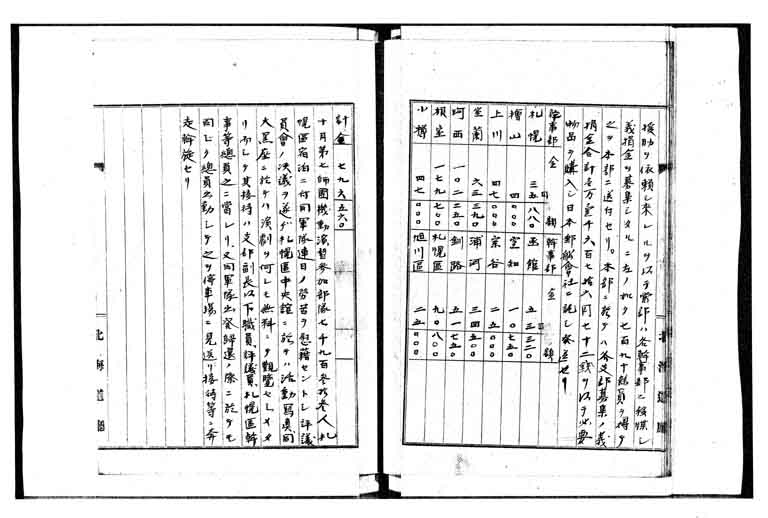 援助ヲ依頼シ来レルヲ以テ當部ハ各幹事部ニ移牒シ
義捐金ヲ募集シタルニ左ノ如ク七百九十餘員ヲ得タ
之ヲ本部ニ送付セリ。本部ニ於テハ各支部募集ノ義
捐金合計壱万壱千六百七拾八円七十二銭ヲ以テ必要
物品ヲ購入シ日本郵船會社ニ託シ發送セリ
幹事部 金額 幹事部 金額
札幌 三五八八〇 函館 五三三二〇
檜山 四〇〇〇 空知 一〇七五〇
上川 四〇〇〇 宗谷 二五〇〇〇
室蘭 六三三九〇 浦河 三四五〇〇
河西 一〇二二五〇 釧路 五一七五〇
根室 一七九七〇〇 札幌區 九〇八〇〇
小樽 四七〇〇〇 旭川區 二五〇〇〇
北海道廳
計金 七九六五六〇
十月第七師團機動演習参加部隊七千九百参拾参人札
幌區宿泊ニ付同軍隊連日ノ勞苦ヲ慰藉セントシ評議
員會ノ決議ヲ遂ゲ札幌區中央館ニ於テハ活動寫真同
大黒座ニ於テハ演劇ヲ何レモ無料ニテ觀覽セシメタ
リ而シテ其接待ハ支部副長以下職員、評議員、札幌區幹
事等總員之ニ當レリ又同軍隊出發歸還ノ際ニ於テモ
同ジク總員之動シテ之ヲ停車場ニ見送リ接待等ニ奔
走斡旋セリ
北海道廳